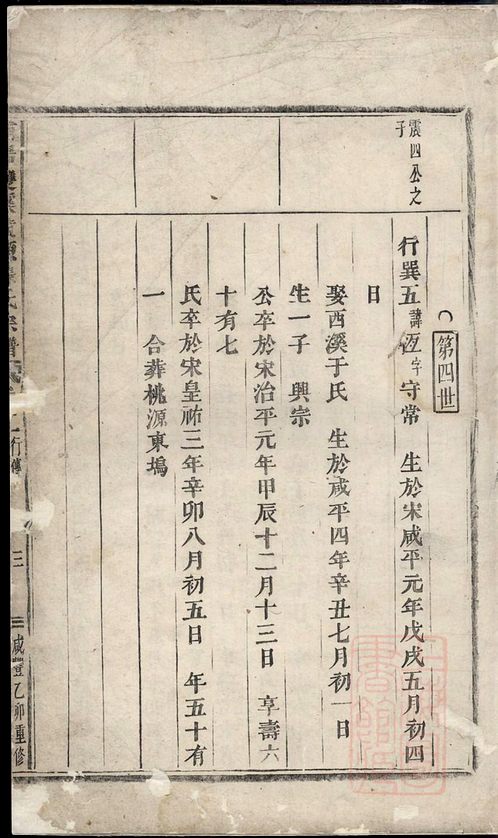 震四公之
子
第四世
行巽五 諱 恆 字 守常 生於宋咸平元年戊戌五月初四
日
娶西溪于氏 生於咸平四年辛丑七月初一日
生一子 興宗
公卒於宋治平元年甲辰十二月十三日 享壽六
十有七
氏卒於宋皇祐三年辛卯八月初五日 年五十有
一 合葬桃源東塢
氏宗譜
行傳
三
咸豐乙卯重修